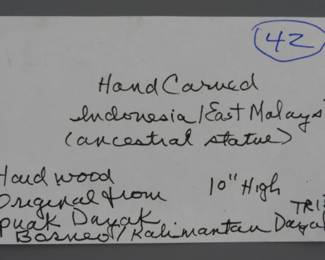 42
Hand Carved
Indonesia/East Malays
(ancestral statue)
Hard wood
Original from 10" High
Dayak TRI
Borneo/Kalimantan Dayak